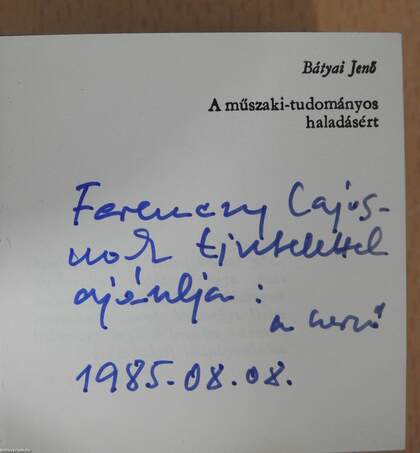 Bátyai Jenő
A műszaki-tudományos
haladásért
Ferenczy Lajos-
nak tisztelettel
ajánlja:
a szerző
1985.08.08.